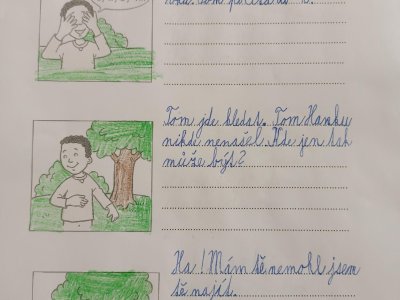 Tom jde hledat. Tom Hanku
nikde nenašel. Kde jen tak
může být?
Ha! Mám tě nemohl jsem
tě najít.